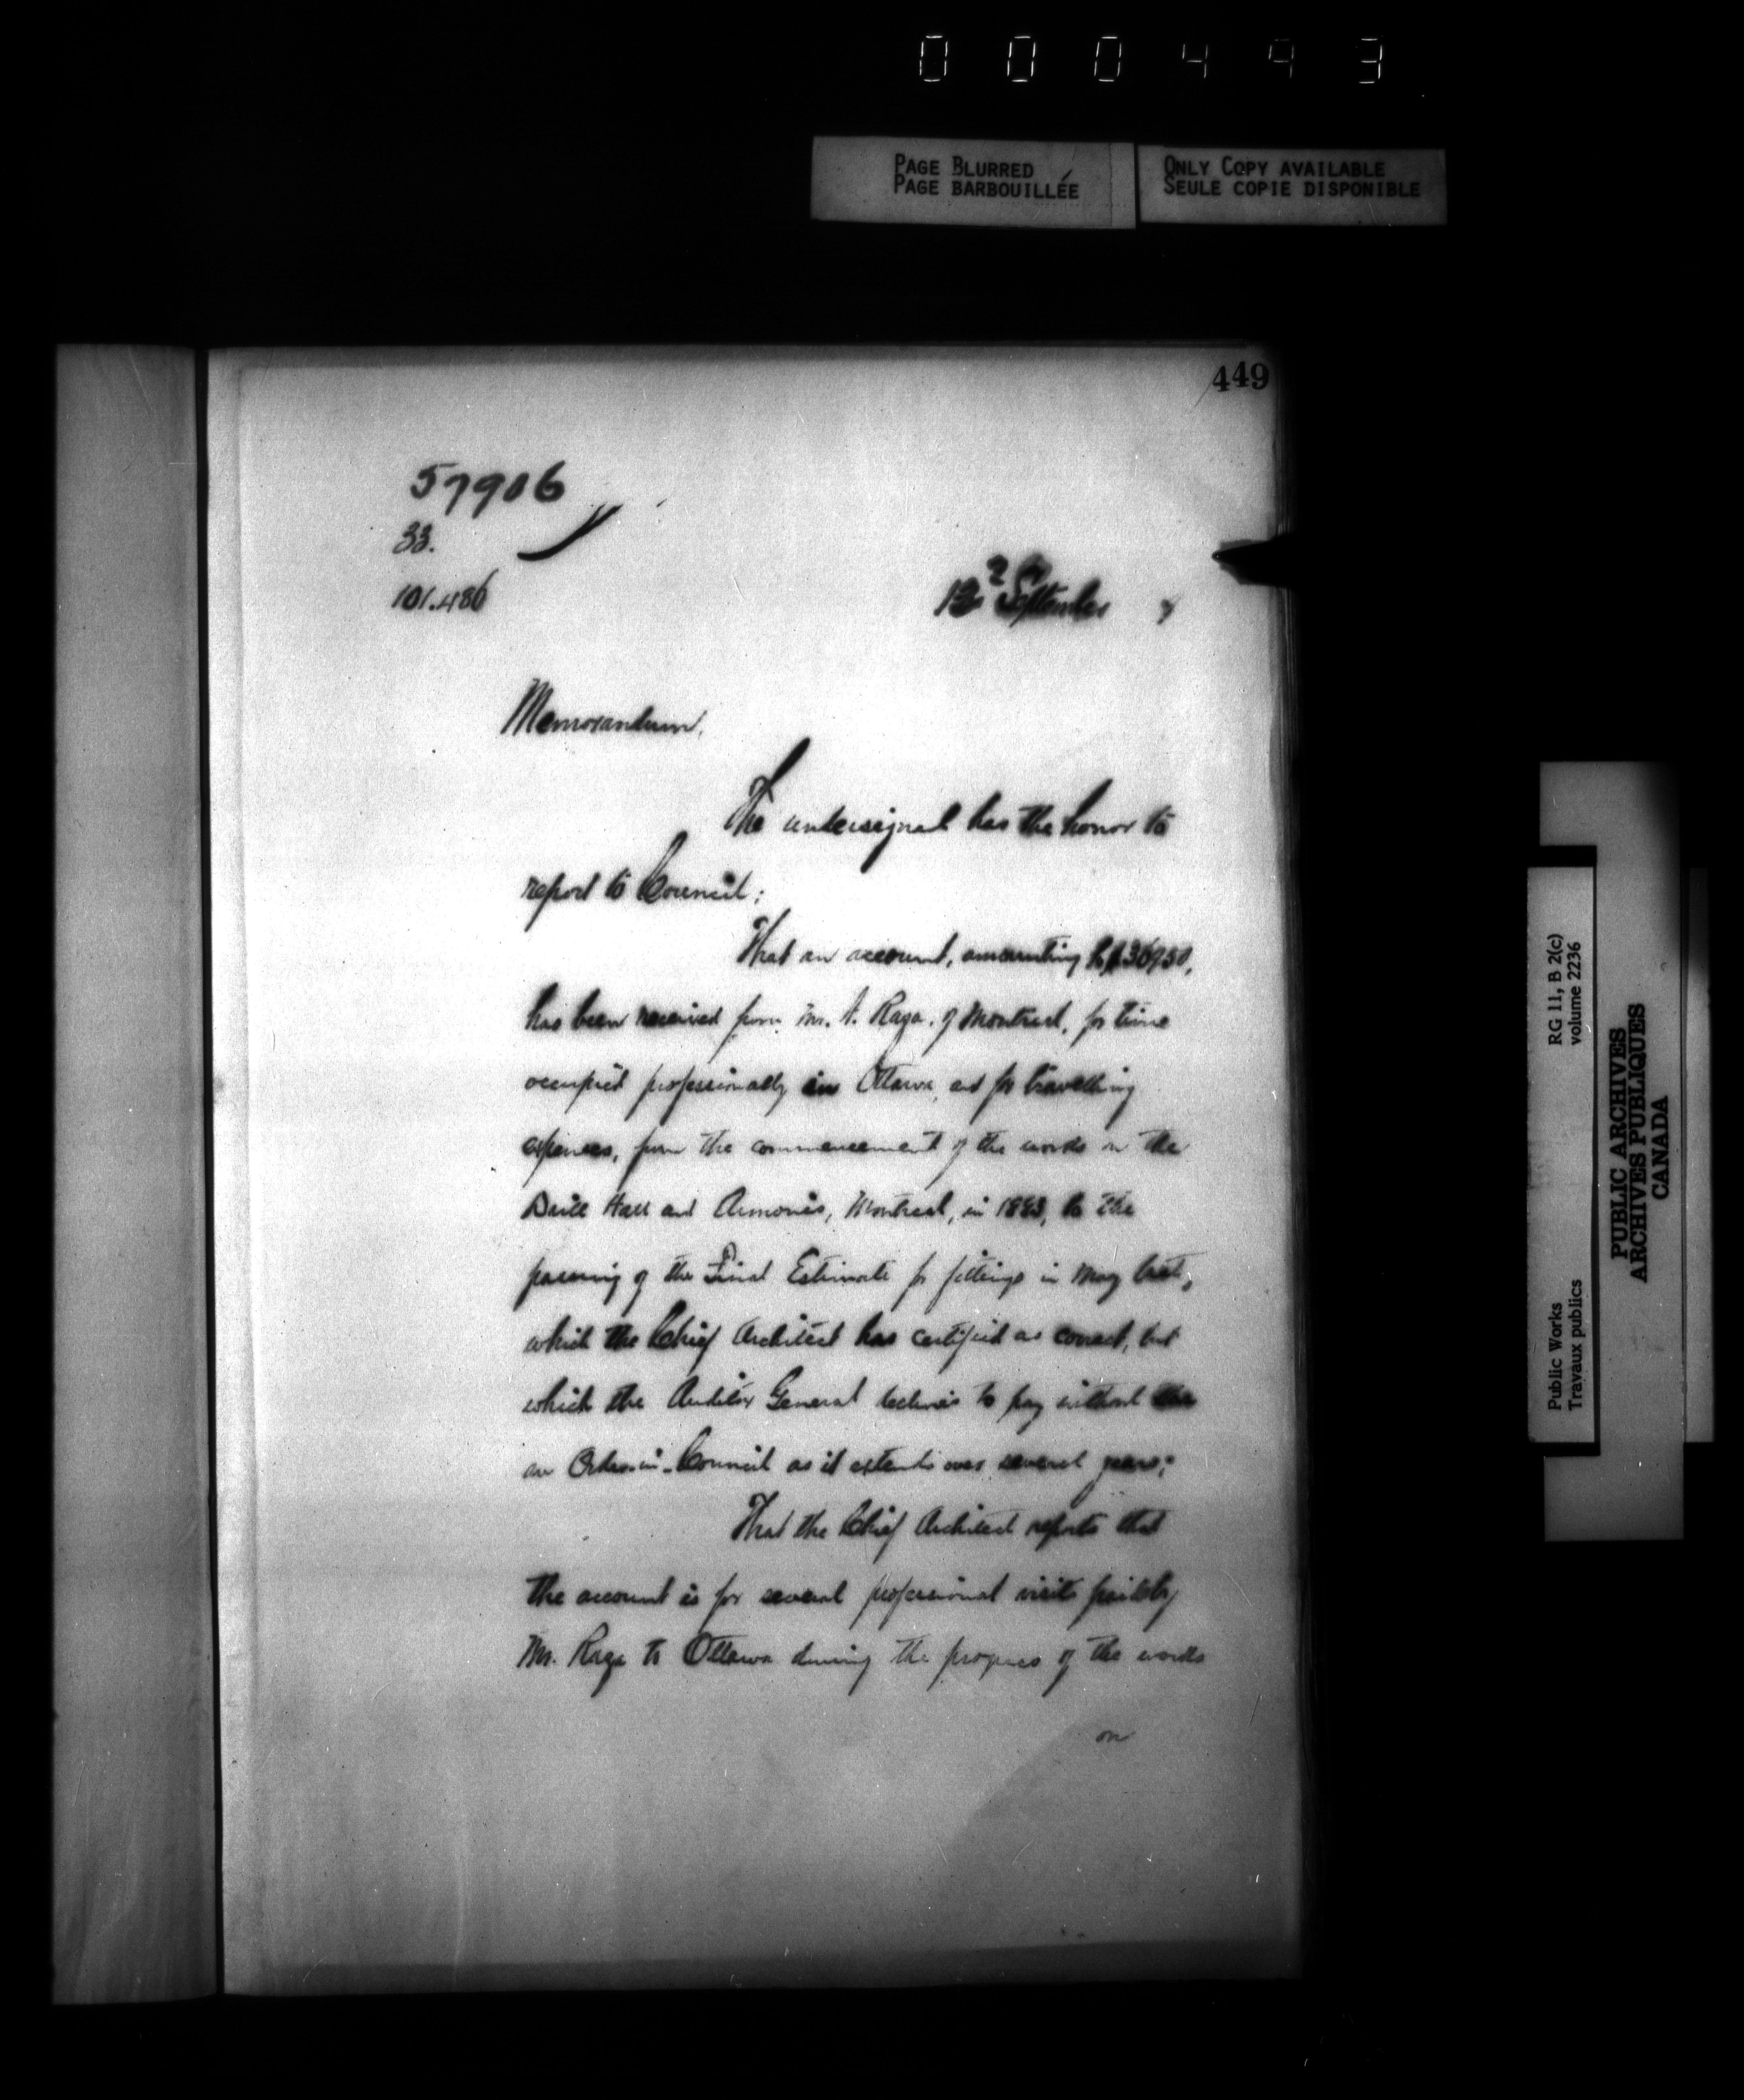 000493
PAGE BLURRED
PAGE BARBOUILLÉE
ONLY COPY AVAILABLE
SEULE COPIE DISPONIBLE
449
57906
33.
101.486
September
Memorandum.
The undersigned has the honor to
report to Council;
That an account, amounting to
has been received from Mr. Raza. of Montreal, for time
occupied professionally in Ottawa, and for travelling
expenses, from the commencement of the works on the
Drill Hall and Armories, Montreal, in 1883, to the
passing of the Final Estimate for fittings in May last,
which the Chief Architect has certified as correct, but
which the Auditor General declines to pay without
an Order-in-Council as it extends over several years;
That the Chief Architect reports that
the account is for several professional visits paid by
Mr. Raza to Ottawa during the progress of the works
on
RG 11, B 2(c)
volume 2236
Public Works
Travaux publics
PUBLIC ARCHIVES
ARCHIVES PUBLIQUES
CANADA